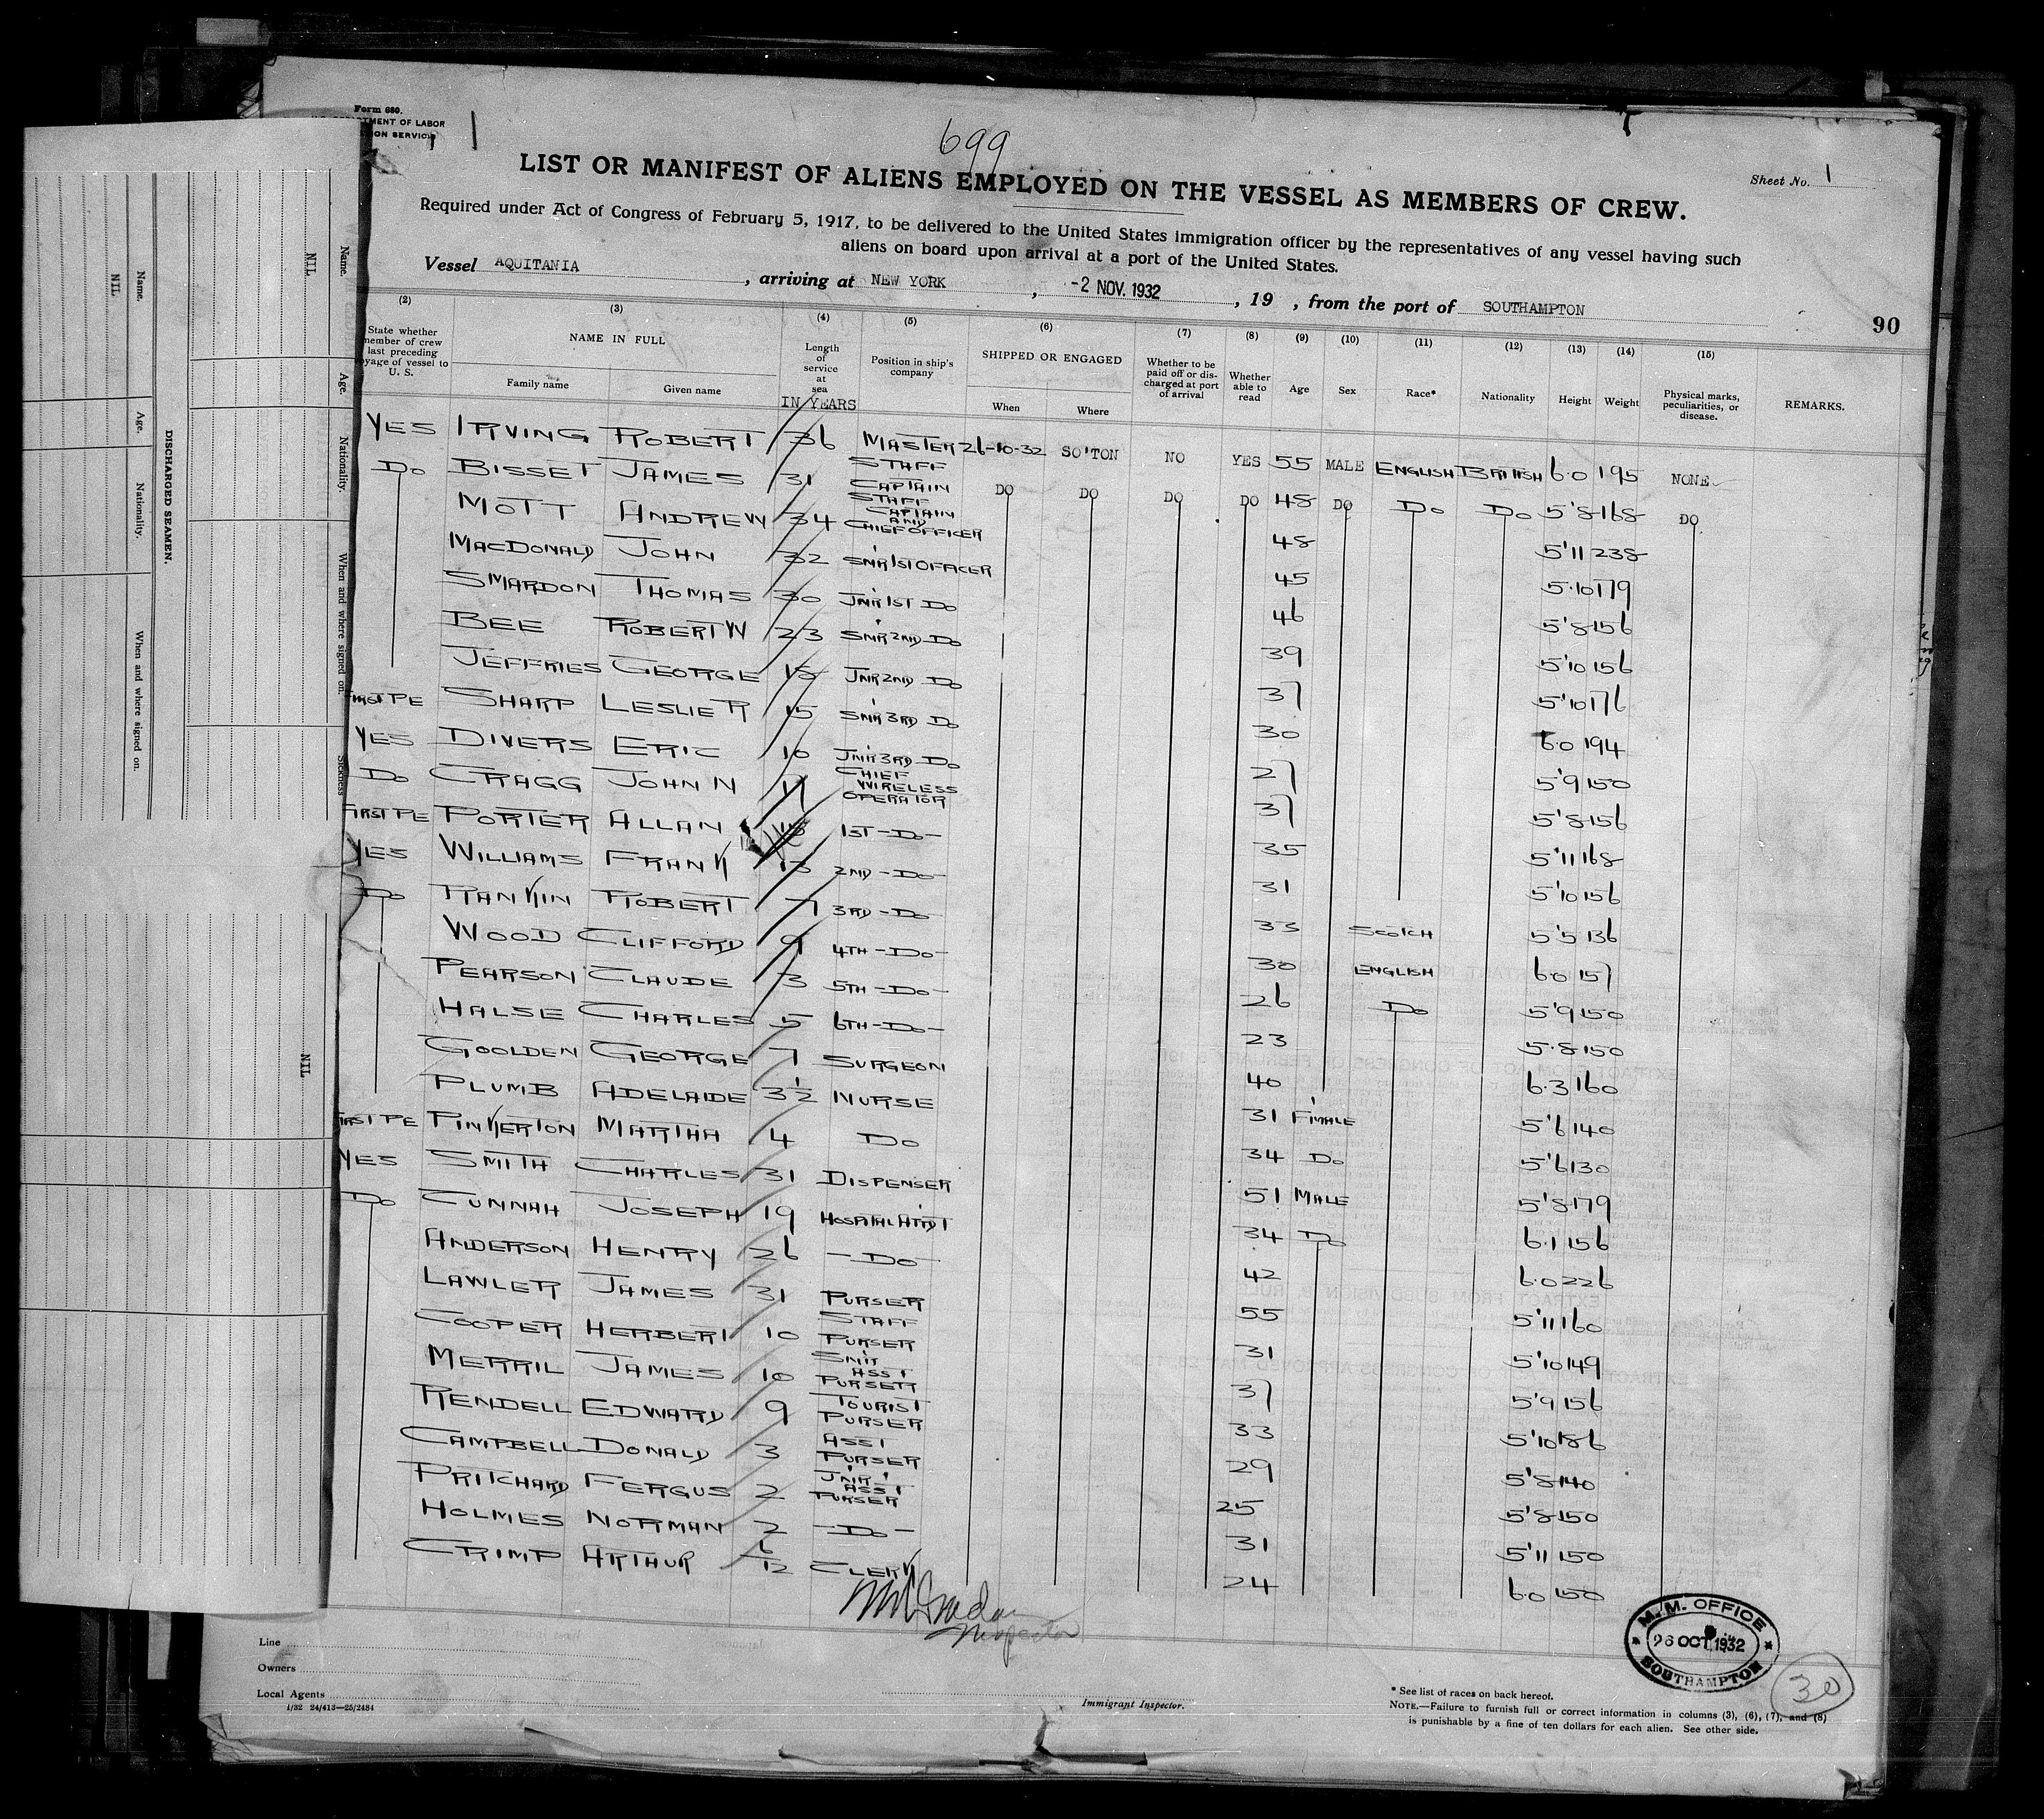 Form 680.
TMENT OF LABOR
ION SERVICE
699
Sheet No. 1
LIST OR MANIFEST OF ALIENS EMPLOYED ON THE VESSEL AS MEMBERS OF CREW.
Required under Act of Congress of February 5, 1917, to be delivered to the United States immigration officer by the representatives of any vessel having such
aliens on board upon arrival at a port of the United States.
Vessel AQUITANIA , arriving at NEW YORK , -2 NOV. 1932 , 19 , from the port of SOUTHAMPTON
90
(2) (3) (4) (5) (6) (7) (8) (9) (10) (11) (12) (13) (14) (15)
State whether member of crew last preceding voyage of vessel to U. S. NAME IN FULL Family name Given name Length of service at sea IN YEARS Position in ship's company SHIPPED OR ENGAGED When Where Whether to be paid off or discharged at port of arrival Whether able to read Age Sex Race* Nationality Height Weight Physical marks, peculiarities, or disease. REMARKS.
YES IRVING ROBERT 36 MASTER 26-10-32 SO'TON NO YES 55 MALE ENGLISH BRITISH 6.0 195 NONE
DO BISSET JAMES 31 STAFF CAPTAIN DO DO DO DO 48 DO DO DO 5'8 168 DO
MOTT ANDREW 34 STAFF CAPTAIN AND CHIEF OFFICER 48 5'11 238
MACDONALD JOHN 32 SNR 1ST OFFICER 45 5.10 179
SMARDON THOMAS 30 JNR 1ST DO 46 5'8 156
BEE ROBERT W 23 SNR 2ND DO 39 5'10 156
JEFFRIES GEORGE 15 JNR 2ND DO 37 5'10 176
FIRST PE SHARP LESLIE R 15 SNR 3RD DO 30 6.0 194
YES DIVERS ERIC 10 JNR 3RD DO 27 5'9 150
DO CRAGG JOHN N 17 CHIEF WIRELESS OPERATOR 37 5'8 156
FIRST PE PORTER ALLAN 1ST - DO - 35 5'11 168
YES WILLIAMS FRANK 13 2ND - DO - 31 5'10 156
DO RANKIN ROBERT 7 3RD - DO - 33 SCOTCH 5'5 136
WOOD CLIFFORD 9 4TH - DO - 30 ENGLISH 6.0 157
PEARSON CLAUDE 3 5TH - DO - 26 DO 5'9 150
HALSE CHARLES 5 6TH - DO - 23 5.8 150
GOOLDEN GEORGE 7 SURGEON 40 6.3 160
PLUMB ADELAIDE 3½ NURSE 31 FIMALE 5'6 140
FIRST PE PINKERTON MARTHA 4 DO 34 DO 5'6 130
YES SMITH CHARLES 31 DISPENSER 51 MALE 5'8 179
DO CUNNAH JOSEPH 19 HOSPITAL ATTDT 34 DO 6.1 156
ANDERSON HENRY 26 - DO - 42 6.0 226
LAWLER JAMES 31 PURSER 55 5'11 160
COOPER HERBERT 10 STAFF PURSER 31 5'10 149
MERRIL JAMES 10 SNR ASST PURSER 37 5'9 156
RENDELL EDWARD 9 TOURIST PURSER 33 5'10 186
CAMPBELL DONALD 3 ASST PURSER 29 5'8 140
PRITCHARD FERGUS 2 JNR ASST PURSER 25 5'8 150
HOLMES NORMAN 2 - DO - 31 5'11 150
CRIMP ARTHUR 6/12 CLERK 24 6.0 150
Inspector
Line
Owners
Local Agents
1/32 24/413—25/2484
Immigrant Inspector.
* See list of races on back hereof.
NOTE.—Failure to furnish full or correct information in columns (3), (6), (7), and (8)
is punishable by a fine of ten dollars for each alien. See other side.
M. M. OFFICE
26 OCT 1932
SOUTHAMPTON
30
DISCHARGED SEAMEN.
Name. Age. Nationality. When and where signed on.
NIL
Name. Age. Nationality. When and where signed on. Sickness
NIL
NIL